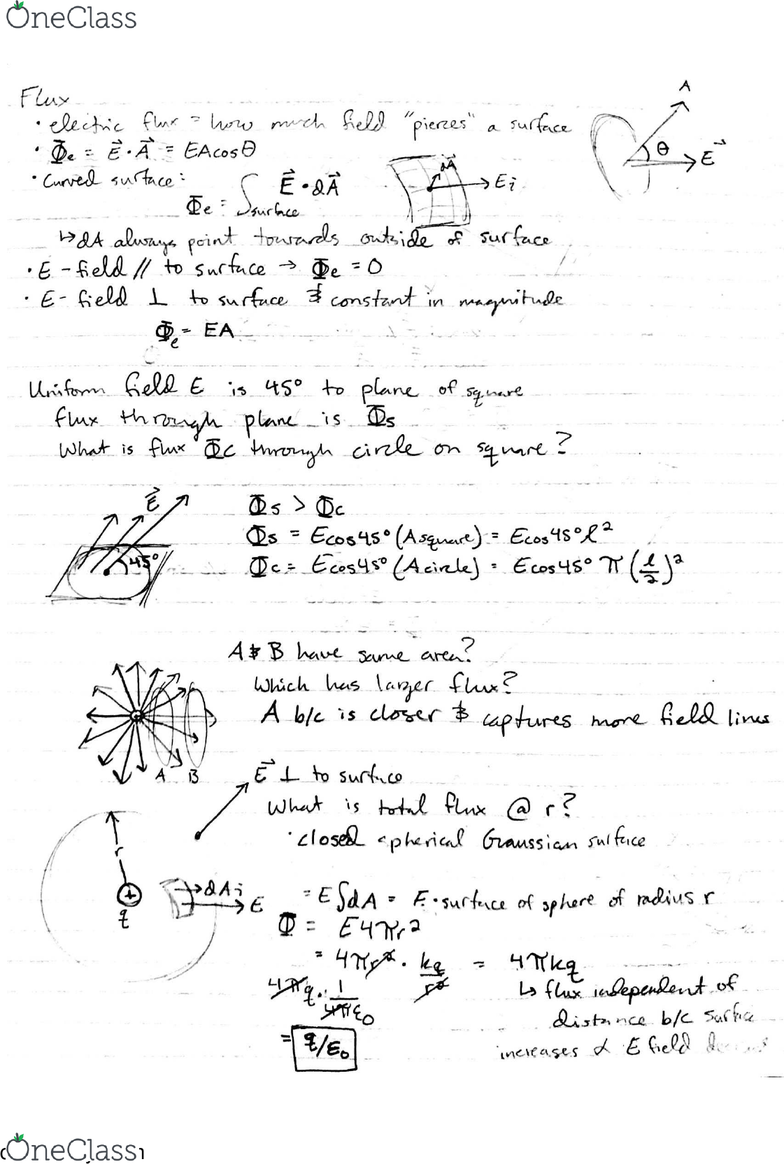 OneClass
Flux
• electric flux = how much field "pierces" a surface
• Φe = E⃗ · A⃗ = EAcosθ
A
θ
E⃗
• Curved surface:
Φe = ∫surface E⃗ · dA⃗
dA⃗
Ei
↳ dA always point towards outside of surface
• E-field // to surface → Φe = 0
• E-field ⊥ to surface & constant in magnitude
Φe = EA
Uniform field E is 45° to plane of square
flux through plane is Φs
What is flux Φc through circle on square?
E⃗
45°
Φs > Φc
Φs = Ecos45° (Asquare) = Ecos45° l²
Φc = Ecos45° (Acircle) = Ecos45° π (l/2)²
A & B have same area?
Which has larger flux?
A b/c is closer & captures more field lines
A B
E⃗ ⊥ to surface
What is total flux @ r?
• closed spherical Gaussian surface
r
+
q
dAi
E
= E∫dA = E · surface of sphere of radius r
Φ = E4πr²
= 4πr² · kq/r² = 4πkq
4πq · 1/4πε0
= q/ε0
↳ flux independent of
distance b/c surface
increases & E field
OneClass